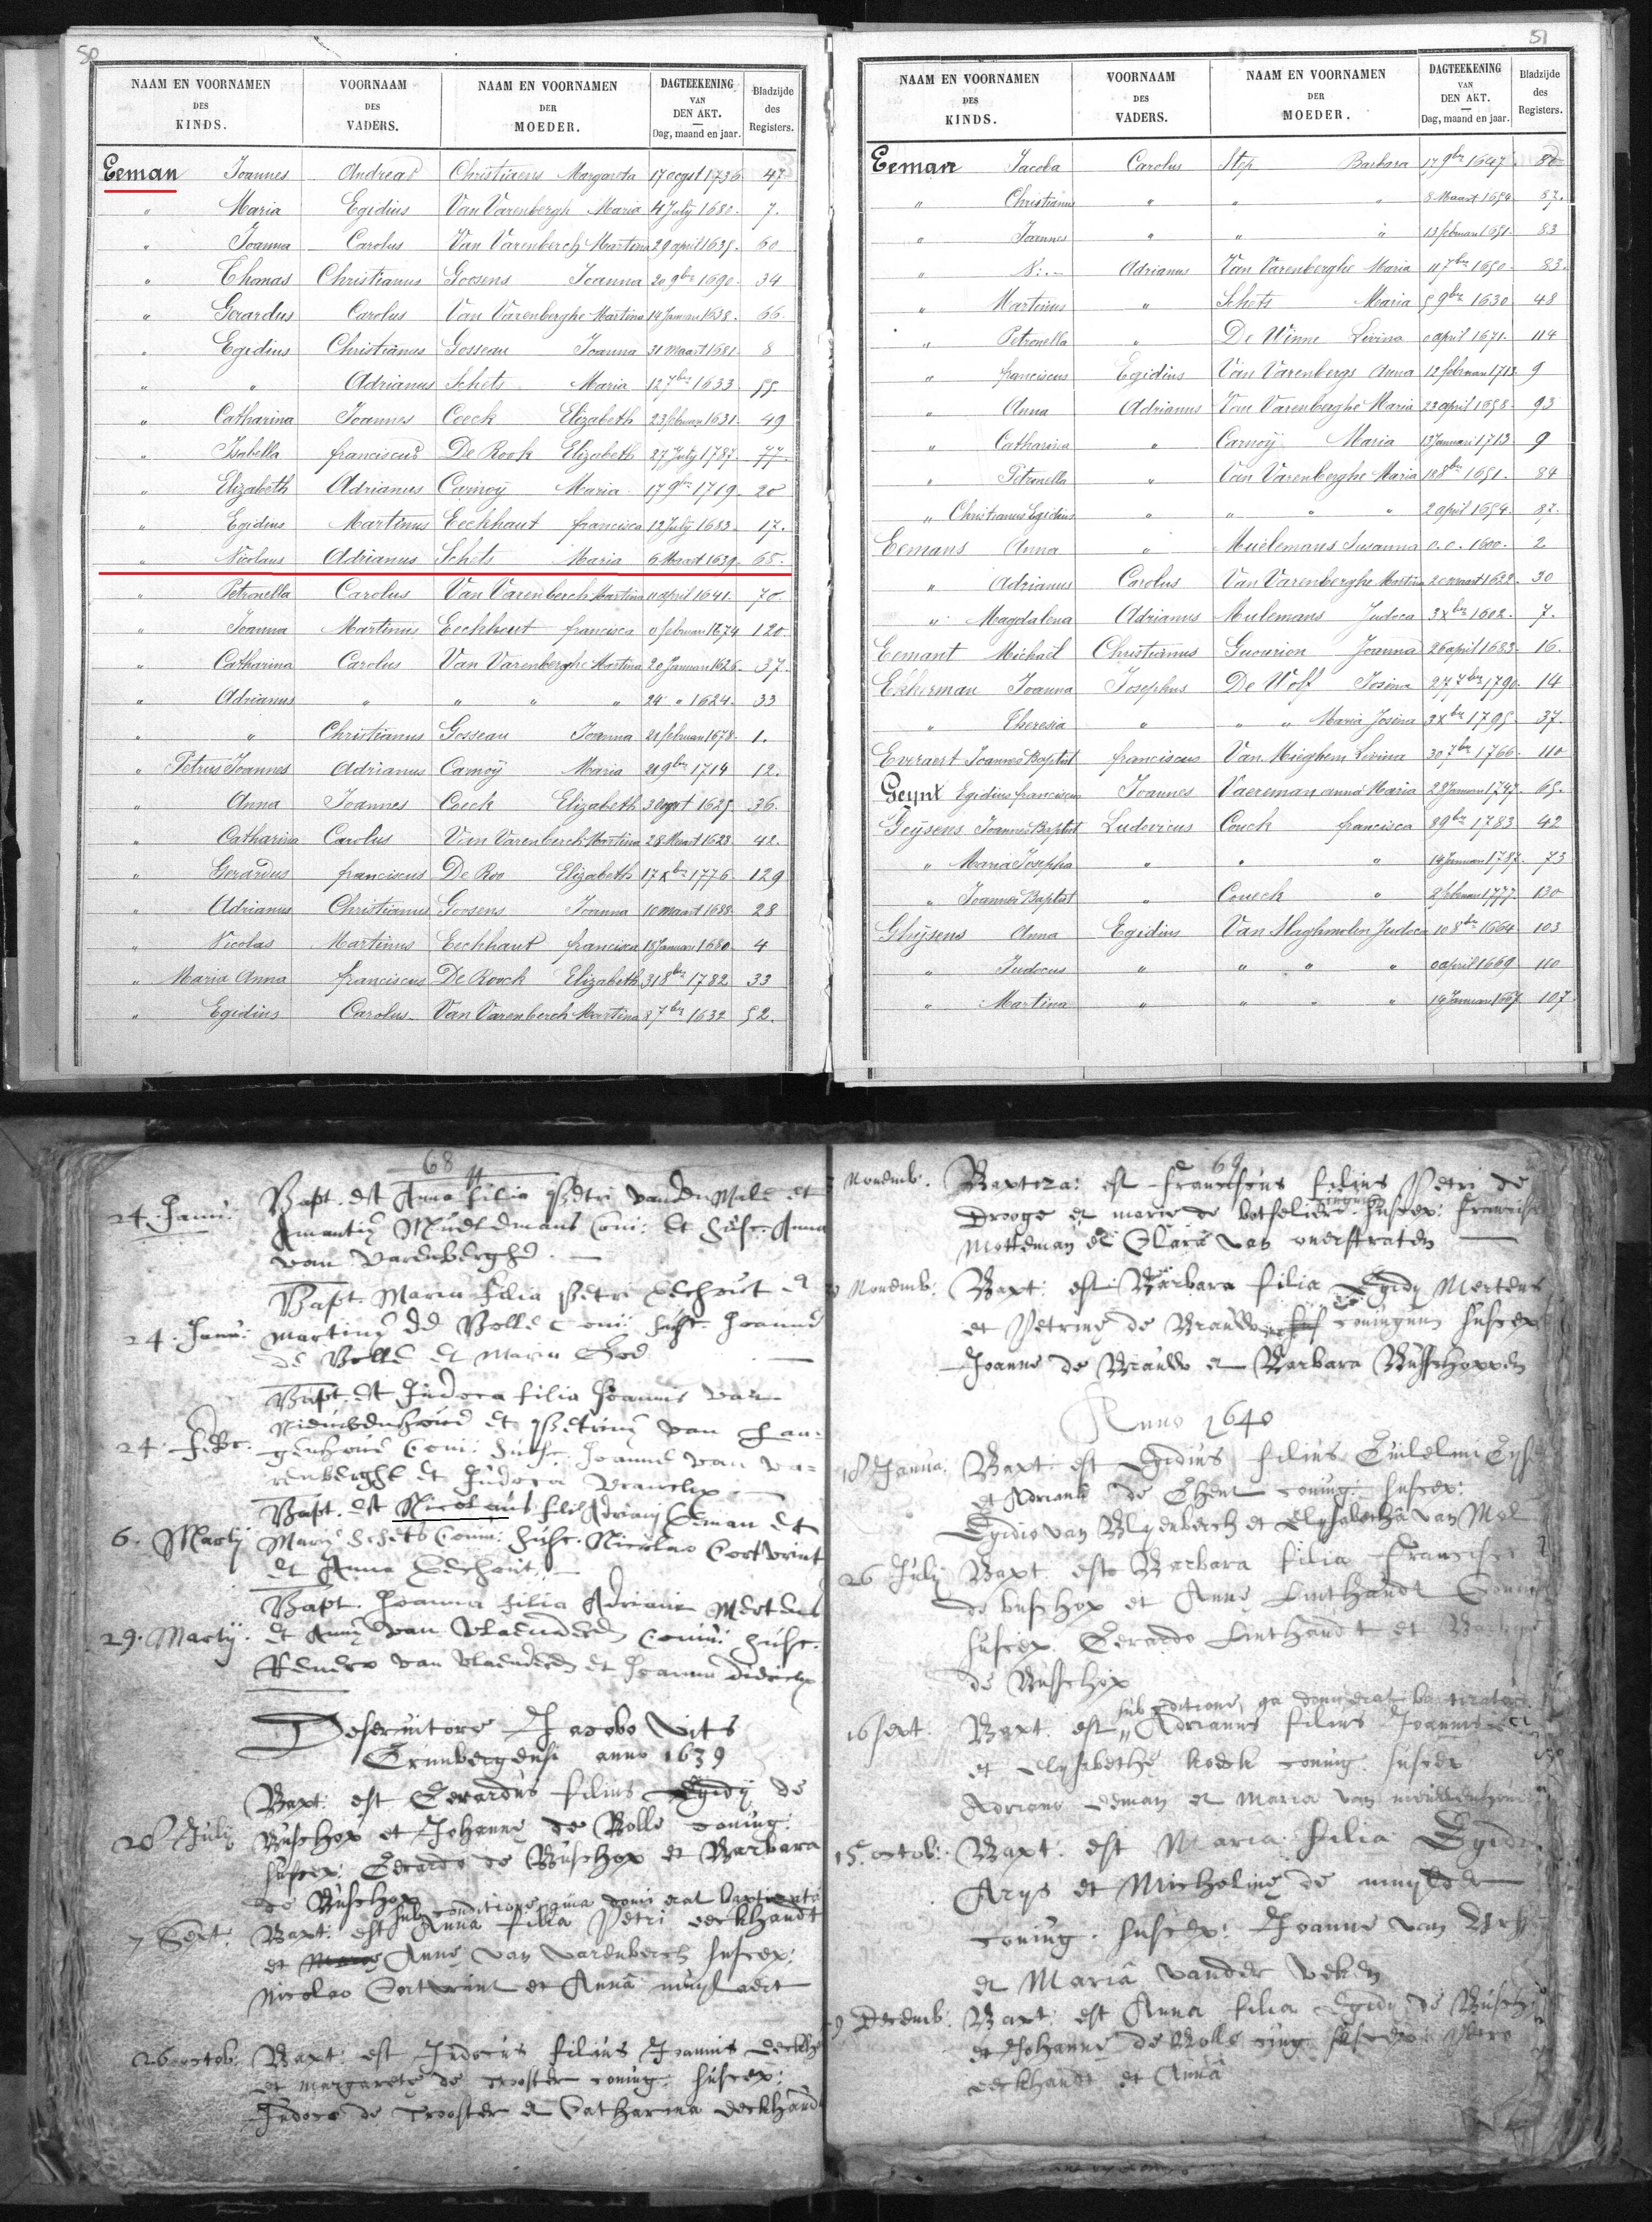 50
NAAM EN VOORNAMEN DES KINDS. VOORNAAM DES VADERS. NAAM EN VOORNAMEN DER MOEDER. DAGTEEKENING VAN DEN AKT. Dag, maand en jaar. Bladzijde des Registers.
Eeman Joannes Andreas Christiaens Margareta 17 oogst 1736. 47
" Maria Egidius Van Varenbergh Maria 4 July 1680. 7.
" Joanna Carolus Van Varenberch Martina 29 april 1635. 60
" Thomas Christianus Goosens Joanna 20 9ber 1690. 34
" Gerardus Carolus Van Varenberghe Martina 14 Januari 1638. 66.
" Egidius Christianus Gosseau Joanna 31 Maart 1681. 8
" " Adrianus Schets Maria 12 7ber 1633 55.
" Catharina Joannes Coeck Elizabeth 23 februari 1631. 49
" Isabella franciscus De Rook Elizabeth 27 July 1787 77
" Elizabeth Adrianus Carnoÿ Maria 17 9ber 1719. 20
" Egidius Martinus Eeckhaut francisca 12 July 1683. 17.
" Nicolaus Adrianus Schets Maria 6 Maart 1639. 65.
" Petronella Carolus Van Varenberch Martina 11 april 1641. 70.
" Joanna Martinus Eeckhout francisca 0 februari 1674 120.
" Catharina Carolus Van Varenberghe Martina 20 Januari 1626. 37.
" Adrianus " " " " 24 " 1624. 33
" " Christianus Gosseau Joanna 21 februari 1678. 1.
" Petrus Joannes Adrianus Carnoÿ Maria 21 9ber 1714 12.
" Anna Joannes Coeck Elizabeth 3 oogst 1625. 36.
" Catharina Carolus Van Varenberch Martina 28 Maart 1628. 42.
" Gerardus franciscus De Roo Elizabeth 17 Xber 1776. 129
" Adrianus Christianus Goosens Joanna 10 maart 1688. 28
" Nicolas Martinus Eeckhaut francisca 18 Januari 1680. 4
" Maria Anna franciscus De Roock Elizabeth 31 8ber 1782 33
" Egidius Carolus Van Varenberch Martina 8 7ber 1632 52.
51
NAAM EN VOORNAMEN DES KINDS. VOORNAAM DES VADERS. NAAM EN VOORNAMEN DER MOEDER. DAGTEEKENING VAN DEN AKT. Dag, maand en jaar. Bladzijde des Registers.
Eeman Jacoba Carolus Step Barbara 17 9ber 1647.
" Christianus " " " 8 Maart 1654 87.
" Joannes " " " 13 februari 1651. 83
" N:.- Adrianus Van Varenberghe Maria 11 7ber 1650. 83.
" Martinus " Schets Maria 5 9ber 1630 48
" Petronella " De Winne Livina 0 april 1671. 114
" franciscus Egidius Van Varenbergs Anna 12 februari 1713. 9
" Anna Adrianus Van Varenberghe Maria 23 april 1658. 93
" Catharina " Carnoÿ Maria 13 Januari 1713. 9
" Petronella " Van Varenberghe Maria 18 8ber 1651. 84
" Christianus Egidius " " " " 2 april 1654. 87.
Eemans Anna " Muelemans Susanna 0. 0. 1600. 2
" Adrianus Carolus Van Varenberghe Martina 20 maart 1622. 30
" Magdalena Adrianus Mulemans Judoca 3 Xber 1602. 7.
Eemant Michaël Christianus Guourion Joanna 26 april 1683. 16.
Ekkerman Joanna Josephus De Wolf Josina 27 7ber 1790. 14
" Theresia " " " Maria Josina 3 Xber 1795. 37.
Everaert Joannes Baptist franciscus Van Mieghem Livina 30 7ber 1766. 110
Geynt Egidius franciscus Joannes Vaereman anna Maria 28 Januari 1747. 65.
Geÿsens Joannes Baptist Ludovicus Couck francisca 8 9ber 1783 42
" Maria Josepha " " " 14 Januari 1787. 73
" Joannes Baptist " Coueck " 2 februari 1777. 130
Ghÿsens Anna Egidius Van Slaghmolen Judoca 10 8ber 1664 103
" Judocus " " " " 0 april 1669 110
" Martina " " " " 14 Januari 1667. 107.
68
24. Janu: Bapt. est Anna filia Petri vanden Male et
Amantiæ Muelemans coni: et susc. Anna
van Varenberghe.
Bapt. Maria filia Petri Eechout et
24. Janu: martinæ de Bolle coni: susc. Joanne
de Bolle et Maria
Bapt. est Judoca filia Joannis van
Nieuwenhove et Petrinæ van Lan=
24. Feb: genhove coni: susc. Joanne van Va=
renberghe et Judoca Vrancken
Bapt. est Nicolaus filius Adriani Eeman et
6. Martij Mariæ Schets coniu: susc. Nicolao Cortvrint
et Anna Eechout.
Bapt. Joanna filia Adriani Mertens
29. Martij. et Annæ van Vlaenderen coniu: susc.
van Vlaenderen et Joanna
Deservitore Jacobo Vits
Grimbergensi anno 1639
Bapt: est Gerardus filius Egidij de
28 Julij Busschop et Johannæ de Bolle coniug:
suscep: Gerardo de Busschop et Barbara
de Busschop
sub conditione, quia domi erat baptizata
7 Sept: Bapt: est Anna filia Petri eeckhaudt
et Annæ van varenberch suscep:
Nicolao Cortvrint et Anna
26 octob. Bapt: est Judocus filius Joannis eeckh
et margaretæ de trooster coniug: suscep:
Judoco de trooster et Catharina eeckhaud
69
Novemb. Baptiza: est franciscus filius Petri de
Drooge et mariæ de coniugum suscep: francisco
Motteman et Clara van overstraten
Novemb: Bapt: est Barbara filia Egidij Mertens
et Petrinæ de Brauwer coniugum suscep
Joanne de Brauw et Barbara Busschoppen
Anno 1640
18 Janua. Bapt. est Egidius filius Guilelmi
et Adrianæ de Ghent coniug: suscep:
Egidio van Blyenberch et elysabetha van Mol
26 Julij Bapt. est Barbara filia francisci
de busschop et Annæ Linthaudt Coniug
suscep. Gerardo Linthaudt et
de Busschop
sub conditione, qa domi erat baptizatus
16 sept. Bapt. est Adrianus filius Joannis
et elysabethæ koeck coniug. suscep
Adriano eeman et maria van
15. octob: Bapt: est Maria filia Egidij
Arys et Michelinæ de muylder
coniug. suscep: Joanne van
et Maria vander veken
Decemb: Bapt: est Anna filia Egidij de Bussch
et Johannæ de Bolle suscep: Petro
eeckhaudt et Anna